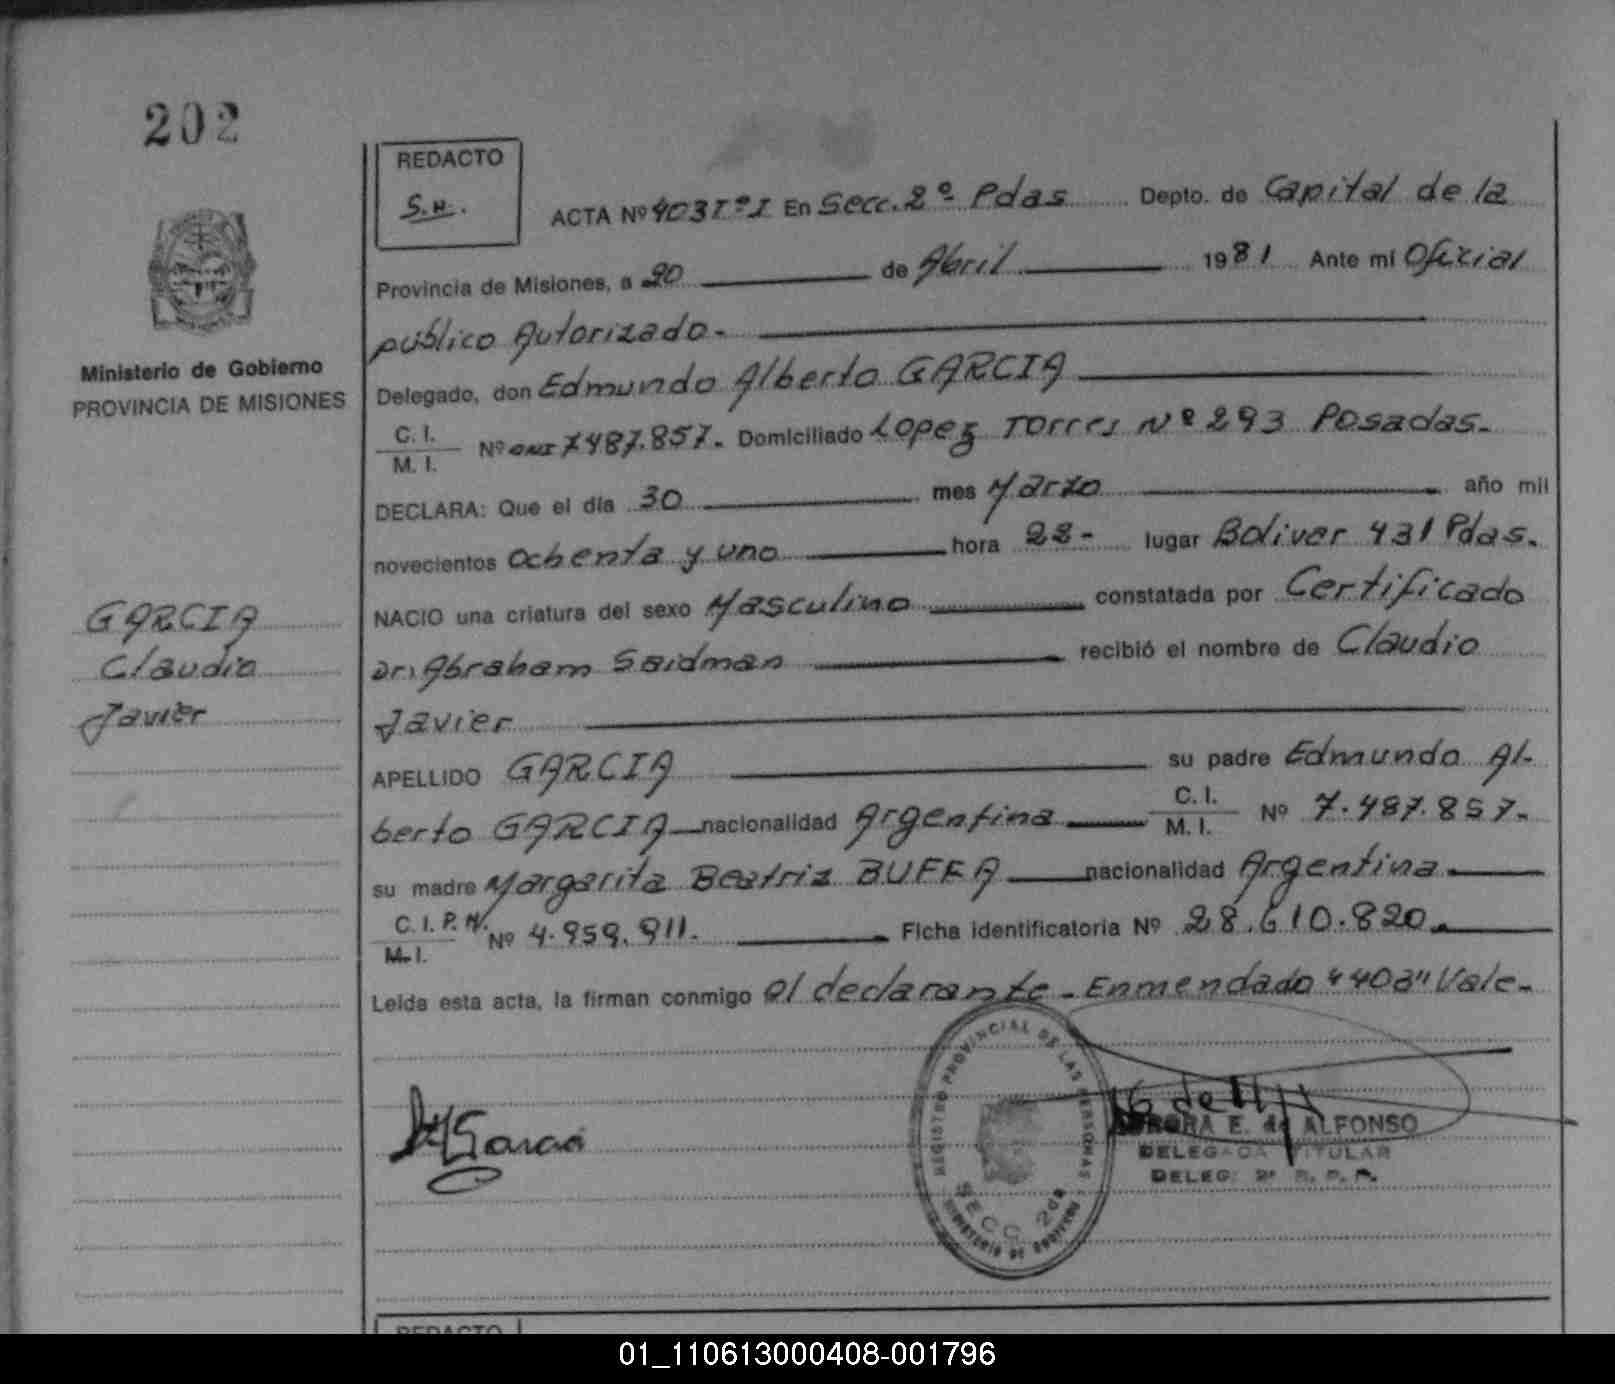 202
REDACTO
S.H.
ACTA Nº 403 Tº I En Secc. 2º Pdas Depto. de Capital de la
Provincia de Misiones, a 20 de Abril 1981 Ante mi Oficial
público Autorizado-
Ministerio de Gobierno
PROVINCIA DE MISIONES
Delegado, don Edmundo Alberto GARCIA
C. I.
M. I. Nº DNI 7487.857. Domiciliado Lopez Torres Nº 293 Posadas.
DECLARA: Que el día 30 mes Marzo año mil
novecientos Ochenta y uno hora 22- lugar Bolivar 431 Pdas.
NACIO una criatura del sexo Masculino constatada por Certificado
Dr. Abraham Saidman recibió el nombre de Claudio
Javier
GARCIA
Claudio
Javier
APELLIDO GARCIA su padre Edmundo Al-
berto GARCIA nacionalidad Argentina C. I. M. I. Nº 7.487.857.
su madre Margarita Beatriz BUFFA nacionalidad Argentina
C. I. P. N. M. I. Nº 4.959.911. Ficha identificatoria Nº 28.610.820.
Leída esta acta, la firman conmigo el declarante. Enmendado "403" Vale.
REGISTRO PROVINCIAL DE LAS PERSONAS
SECC. 2da
MINISTERIO DE GOBIERNO
E. de ALFONSO
DELEGADA TITULAR
DELEG. 2ª R. P. P.
REDACTO
01_110613000408-001796